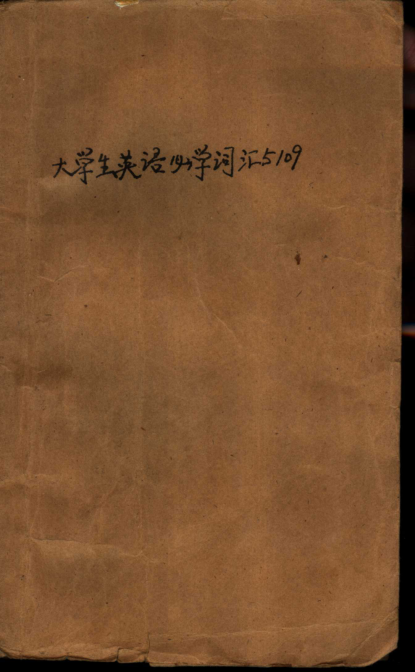 大学生英语必学词汇5109